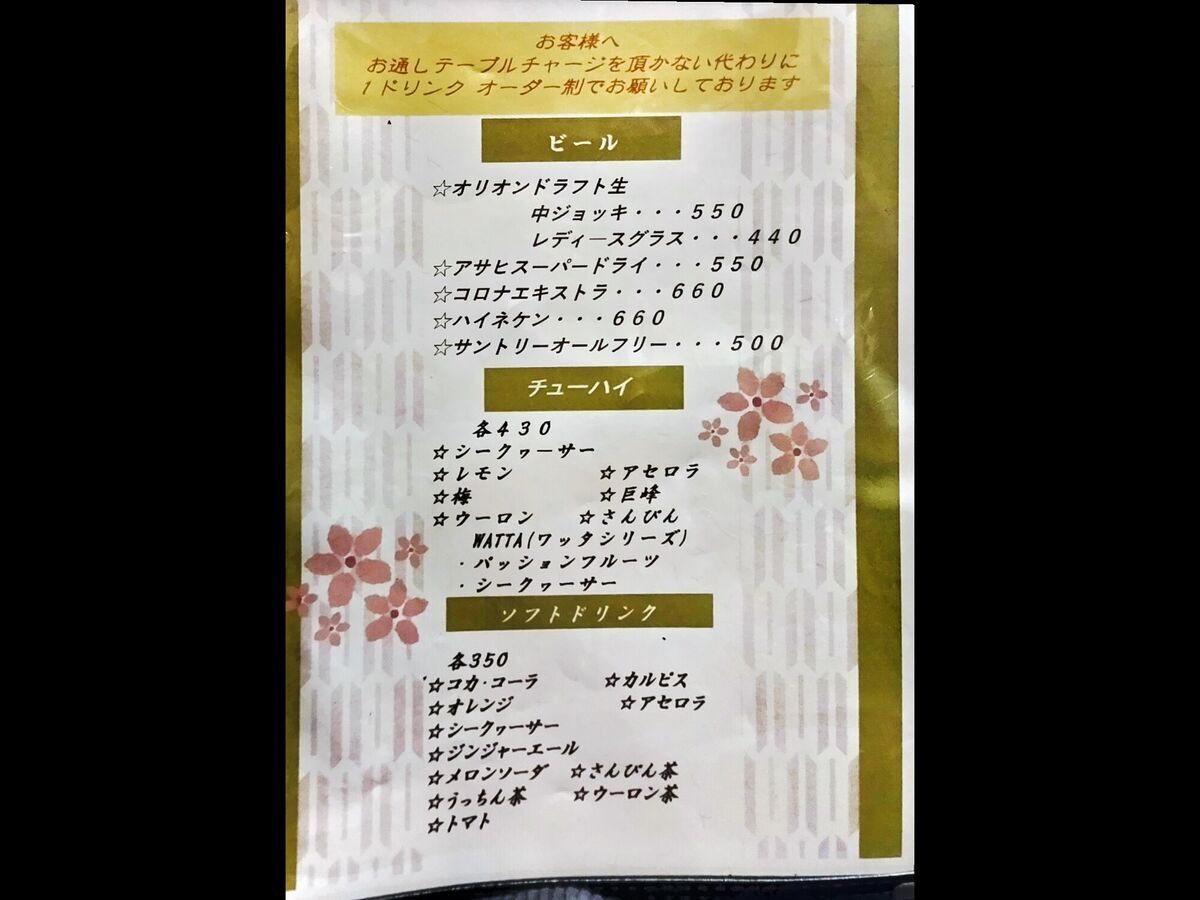 お客様へ
お通しテーブルチャージを頂かない代わりに
1ドリンク オーダー制でお願いしております
ビール
☆オリオンドラフト生
中ジョッキ・・・550
レディースグラス・・・440
☆アサヒスーパードライ・・・550
☆コロナエキストラ・・・660
☆ハイネケン・・・660
☆サントリーオールフリー・・・500
チューハイ
各430
☆シークヮーサー
☆レモン ☆アセロラ
☆梅 ☆巨峰
☆ウーロン ☆さんぴん
WATTA(ワッタシリーズ)
・パッションフルーツ
・シークヮーサー
ソフトドリンク
各350
☆コカ・コーラ ☆カルピス
☆オレンジ ☆アセロラ
☆シークヮーサー
☆ジンジャーエール
☆メロンソーダ ☆さんぴん茶
☆うっちん茶 ☆ウーロン茶
☆トマト